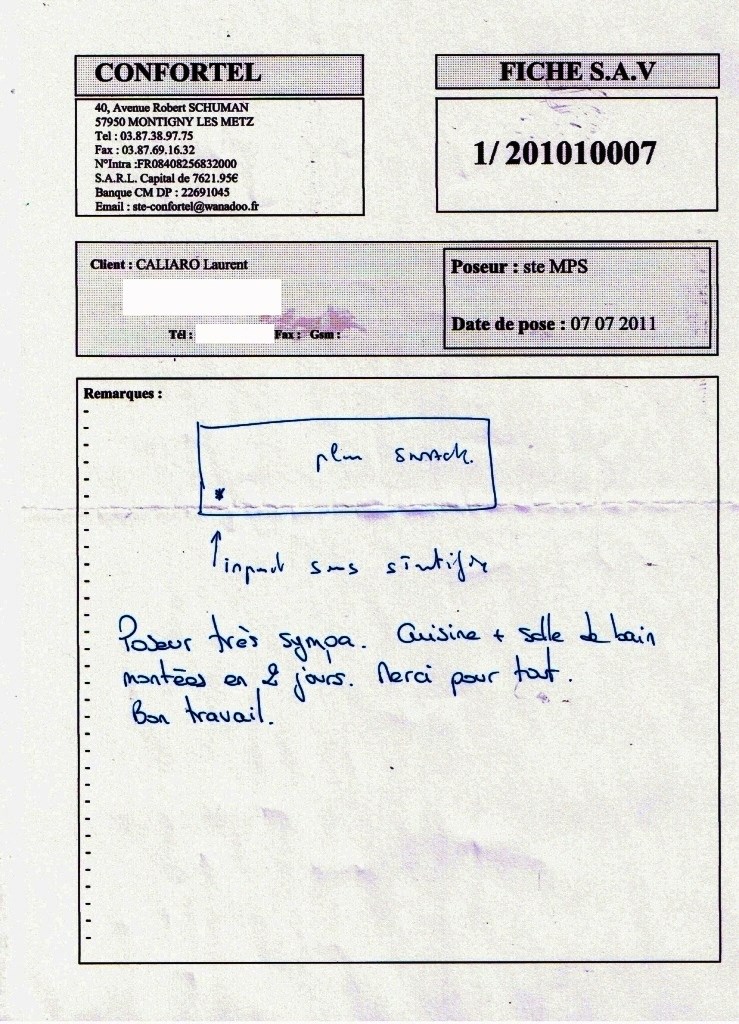 CONFORTEL
FICHE S.A.V
40, Avenue Robert SCHUMAN
57950 MONTIGNY LES METZ
Tel : 03.87.38.97.75
Fax : 03.87.69.16.32
N°Intra :FR08408256832000
S.A.R.L. Capital de 7621.95€
Banque CM DP : 22691045
Email : ste-confortel@wanadoo.fr
1/ 201010007
Client : CALIARO Laurent
Tél : Fax : Gsm :
Poseur : ste MPS
Date de pose : 07 07 2011
Remarques :
plan snack.
*
impact sous
Poseur très sympa. Cuisine + salle de bain
montées en 2 jours. Merci pour tout.
Bon travail.